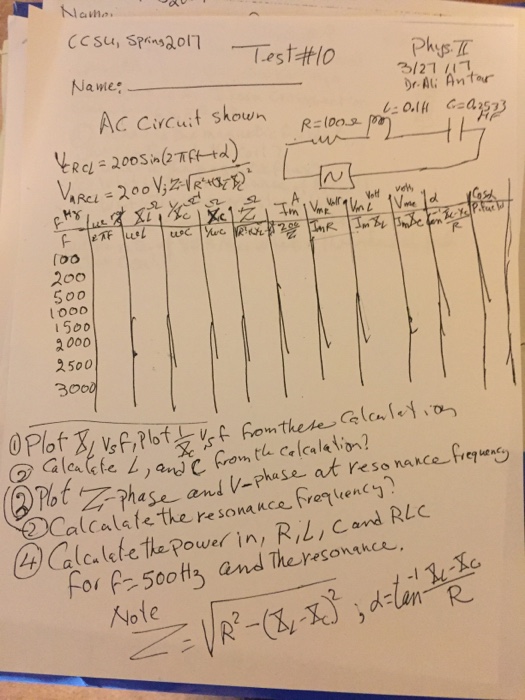 Name:
CCSU, Spring 2017
Test #10
Phys. II
3/27/17
Dr. Ali Antar
Name:
AC Circuit shown
R=100Ω L=0.1H C=0.2533 MF
VRCL = 200 Sin(2πft+α)
VMRCL = 200 V; Z=√R²+(XL-XC)²
f Hz ω XL Ω 1/XC XC Ω Z Ω Im A VmR Volt VmL Volt Vmc Volt α Cosα
f 2πf ωL ωC 1/ωC 200/Z ImR ImXL ImXC tan⁻¹ XL-XC/R
100
200
500
1000
1500
2000
2500
3000
① Plot XL vs f, Plot 1/XC vs f from these calculation
② Calculate L, and C from the calculation?
③ Plot Z-phase and V-phase at resonance frequency
② Calcalate the resonance frequency?
④ Calculate the power in, R, L, C and RLC
for f=500Hz and the resonance.
Note
Z=√R²-(XL-XC)² ; α=tan⁻¹ XL-XC/R